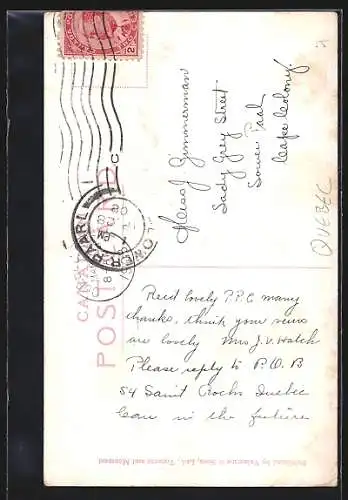 CANADA
POST CARD
2
LOWER PAARL
C
Miss J. Zimmerman
Lady Grey Street
Lower Paal
Cape Colony.
QUEBEC
Recd lovely P.P.C many
thanks, think your views
are lovely Mrs J. V. Hatch
Please reply to P.O.B
54 Saint Rochs Quebec
Can in the future
Published by Valentine & Sons, Ltd., Toronto and Montreal